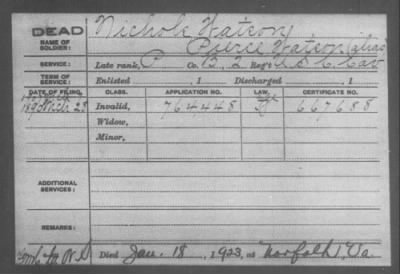 DEAD
NAME OF SOLDIER:
Nichols Watson
Peirce Watson (alias)
SERVICE:
Late rank, C Co. B, 2 Reg't U S C Cav
TERM OF SERVICE:
Enlisted , 1 Discharged , 1
DATE OF FILING. CLASS. APPLICATION NO. LAW. CERTIFICATE NO.
1890 Mch 28 Invalid, 764448 667688
Widow,
Minor,
ADDITIONAL SERVICES:
REMARKS:
Died Jan. 18, 1923, at Norfolk, Va